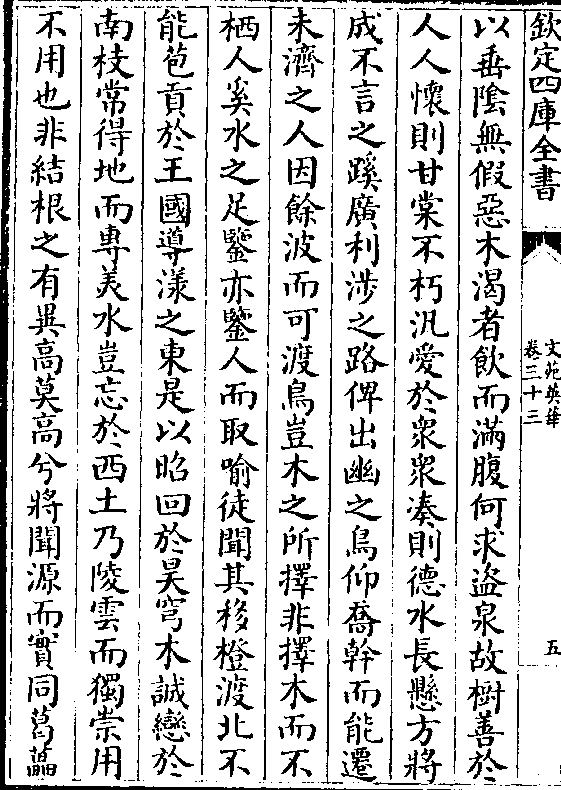 欽定四庫全書
文苑英華
卷三十三
五
以垂陰無假惡木渴者飲而滿腹何求盜泉故樹善於
人人懷則甘棠不朽汎愛於衆衆湊則德水長懸方將
成不言之蹊廣利渉之路俾出幽之鳥仰喬幹而能遷
未濟之人因餘波而可渡鳥豈木之所擇非擇木而不
栖人奚水之足鑒亦鑒人而取喻徒聞其移橙渡北不
能苞貢於王國導漾之東是以昭回於昊穹木誠戀於
南枝常得地而專美水豈忘於西土乃陵雲而獨崇用
不用也非結根之有異高莫高兮將聞源而實同葛藟